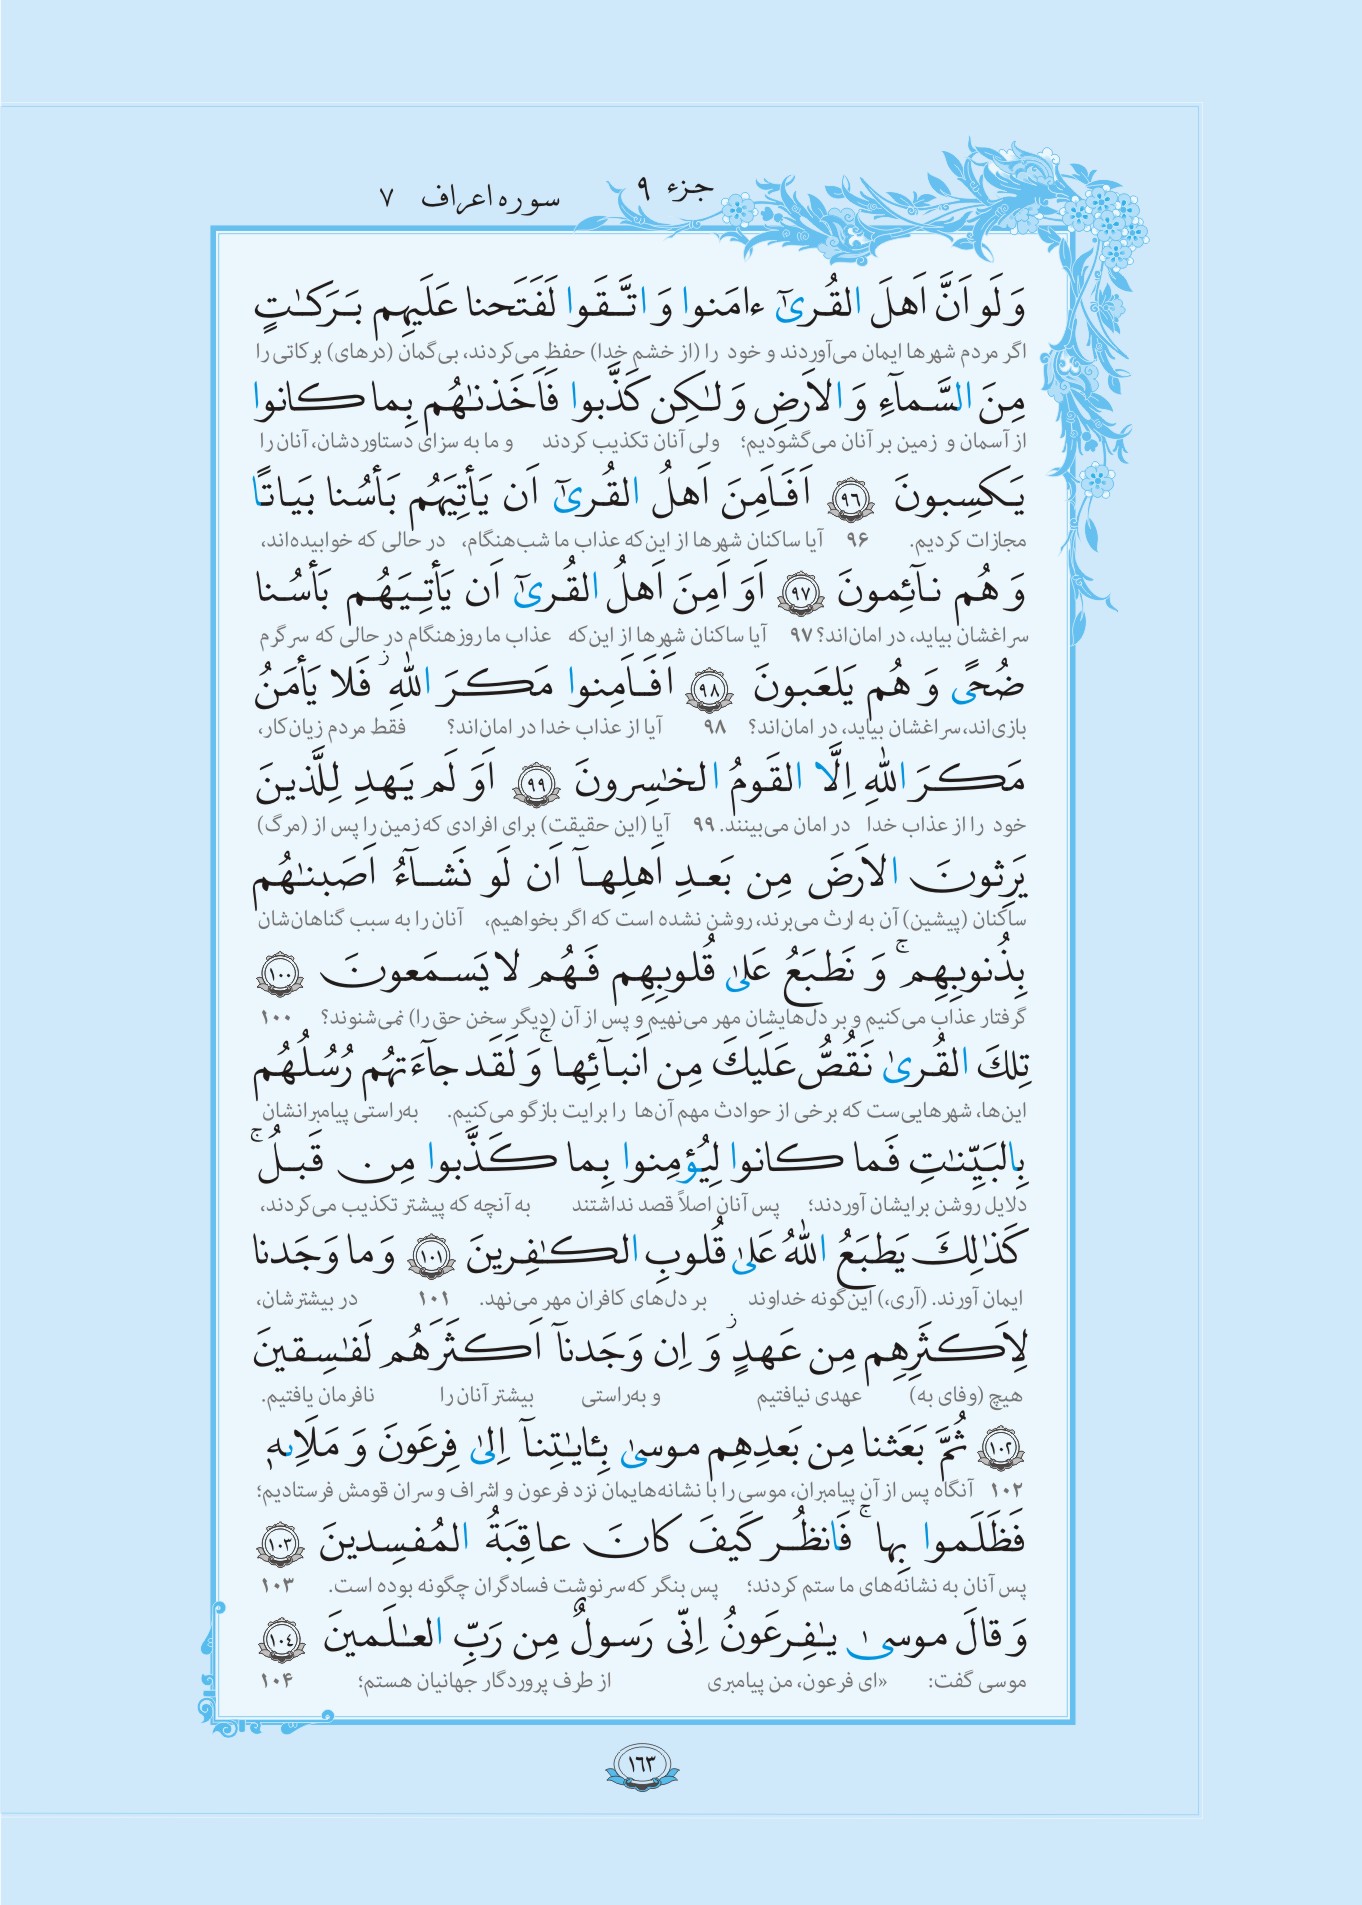 جزء ۹
سوره اعراف ۷
وَ لَو اَنَّ اَهلَ القُرىٰٓ ءامَنوا وَ اتَّقَوا لَفَتَحنا عَلَيهِم بَرَكـٰتٍ
اگر مردم شهرها ایمان می‌آوردند و خود را (از خشم خدا) حفظ می‌کردند، بی‌گمان (درهای) برکاتی را
مِنَ السَّماۤءِ وَ الاَرضِ وَ لـٰكِن كَذَّبوا فَاَخَذنـٰهُم بِما كانوا
از آسمان و زمین بر آنان می‌گشودیم؛ ولی آنان تکذیب کردند و ما به سزای دستاوردشان، آنان را
يَكسِبونَ ﴿٩٦﴾ اَفَاَمِنَ اَهلُ القُرىٰٓ اَن يَأتِيَهُم بَأسُنا بَياتًا
مجازات کردیم. ۹۶ آیا ساکنان شهرها از این‌که عذاب ما شب‌هنگام، در حالی که خوابیده‌اند،
وَ هُم نآئِمونَ ﴿٩٧﴾ اَوَ اَمِنَ اَهلُ القُرىٰٓ اَن يَأتِيَهُم بَأسُنا
سراغشان بیاید، در امان‌اند؟ ۹۷ آیا ساکنان شهرها از این‌که عذاب ما روزهنگام در حالی که سرگرم
ضُحًى وَ هُم يَلعَبونَ ﴿٩٨﴾ اَفَاَمِنوا مَكرَ اللهِ ۚز فَلا يَأمَنُ
بازی‌اند، سراغشان بیاید، در امان‌اند؟ ۹۸ آیا از عذاب خدا در امان‌اند؟ فقط مردم زیان‌کار،
مَكرَ اللهِ اِلَّا القَومُ الخـٰسِرونَ ﴿٩٩﴾ اَوَ لَم يَهدِ لِلَّذينَ
خود را از عذاب خدا در امان می‌بینند. ۹۹ آیا (این حقیقت) برای افرادی که زمین را پس از (مرگ)
يَرِثونَ الاَرضَ مِن بَعدِ اَهلِهآ اَن لَو نَشآءُ اَصَبنـٰهُم
ساکنان (پیشین) آن به ارث می‌برند، روشن نشده است که اگر بخواهیم، آنان را به سبب گناهان‌شان
بِذُنوبِهِم ۚ وَ نَطبَعُ عَلىٰ قُلوبِهِم فَهُم لا يَسمَعونَ ﴿١٠٠﴾
گرفتار عذاب می‌کنیم و بر دل‌هایشان مهر می‌نهیم و پس از آن (دیگر سخن حق را) نمی‌شنوند؟ ۱۰۰
تِلكَ القُرىٰ نَقُصُّ عَلَيكَ مِن اَنبآئِها ۚ وَ لَقَد جآءَتهُم رُسُلُهُم
این‌ها، شهرهایی‌ست که برخی از حوادث مهم آن‌ها را برایت بازگو می‌کنیم. به‌راستی پیامبرانشان
بِالبَيِّنـٰتِ فَما كانوا لِيُؤمِنوا بِما كَذَّبوا مِن قَبلُ ۚ
دلایل روشن برایشان آوردند؛ پس آنان اصلاً قصد نداشتند به آنچه که پیشتر تکذیب می‌کردند،
كَذٰلِكَ يَطبَعُ اللهُ عَلىٰ قُلوبِ الكـٰفِرينَ ﴿١٠١﴾ وَ ما وَجَدنا
ایمان آورند. (آری،) این‌گونه خداوند بر دل‌های کافران مهر می‌نهد. ۱۰۱ در بیشترشان،
لِاَكثَرِهِم مِن عَهدٍ ز وَ اِن وَجَدنآ اَكثَرَهُم لَفـٰسِقينَ
هیچ (وفای به) عهدی نیافتیم و به‌راستی بیشتر آنان را نافرمان یافتیم.
﴿١٠٢﴾ ثُمَّ بَعَثنا مِن بَعدِهِم موسىٰ بِـٔايـٰتِنآ اِلىٰ فِرعَونَ وَ مَلَاِيهٖ
۱۰۲ آنگاه پس از آن پیامبران، موسی را با نشانه‌هایمان نزد فرعون و اشراف و سران قومش فرستادیم؛
فَظَلَموا بِها ۚ فَانظُر كَيفَ كانَ عاقِبَةُ المُفسِدينَ ﴿١٠٣﴾
پس آنان به نشانه‌های ما ستم کردند؛ پس بنگر که سرنوشت فسادگران چگونه بوده است. ۱۰۳
وَ قالَ موسىٰ يـٰفِرعَونُ اِنّى رَسولٌ مِن رَبِّ العـٰلَمينَ ﴿١٠٤﴾
موسی گفت: «ای فرعون، من پیامبری از طرف پروردگار جهانیان هستم؛ ۱۰۴
١٦٣